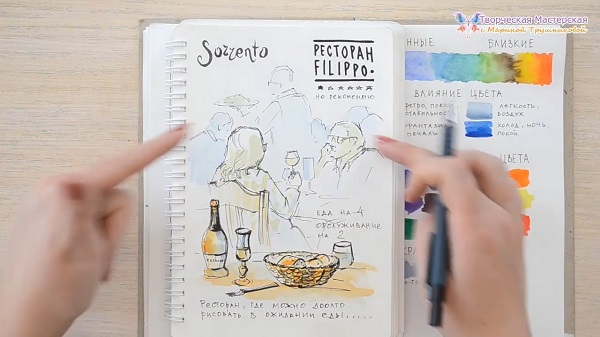 Творческая Мастерская
с Мариной Трушниковой
Sorrento
РЕСТОРАН
FILIPPO.
не рекомендую
ЕДА НА 4
ОБСЛУЖИВАНИЕ
НА 2
РЕСТОРАН, ГДЕ МОЖНО ДОЛГО
РИСОВАТЬ В ОЖИДАНИИ ЕДЫ.....
ННЫЕ БЛИЗКИЕ
ВЛИЯНИЕ ЦВЕТА
РЕТРО, ПОКОЙ
СТАБИЛЬНОС
ЛЕГКОСТЬ,
ВОЗДУХ
ФАНТАЗИ
ПЕЧАЛЬ
ХОЛОД, НОЧЬ,
ПОКОЙ
ЦВЕТА